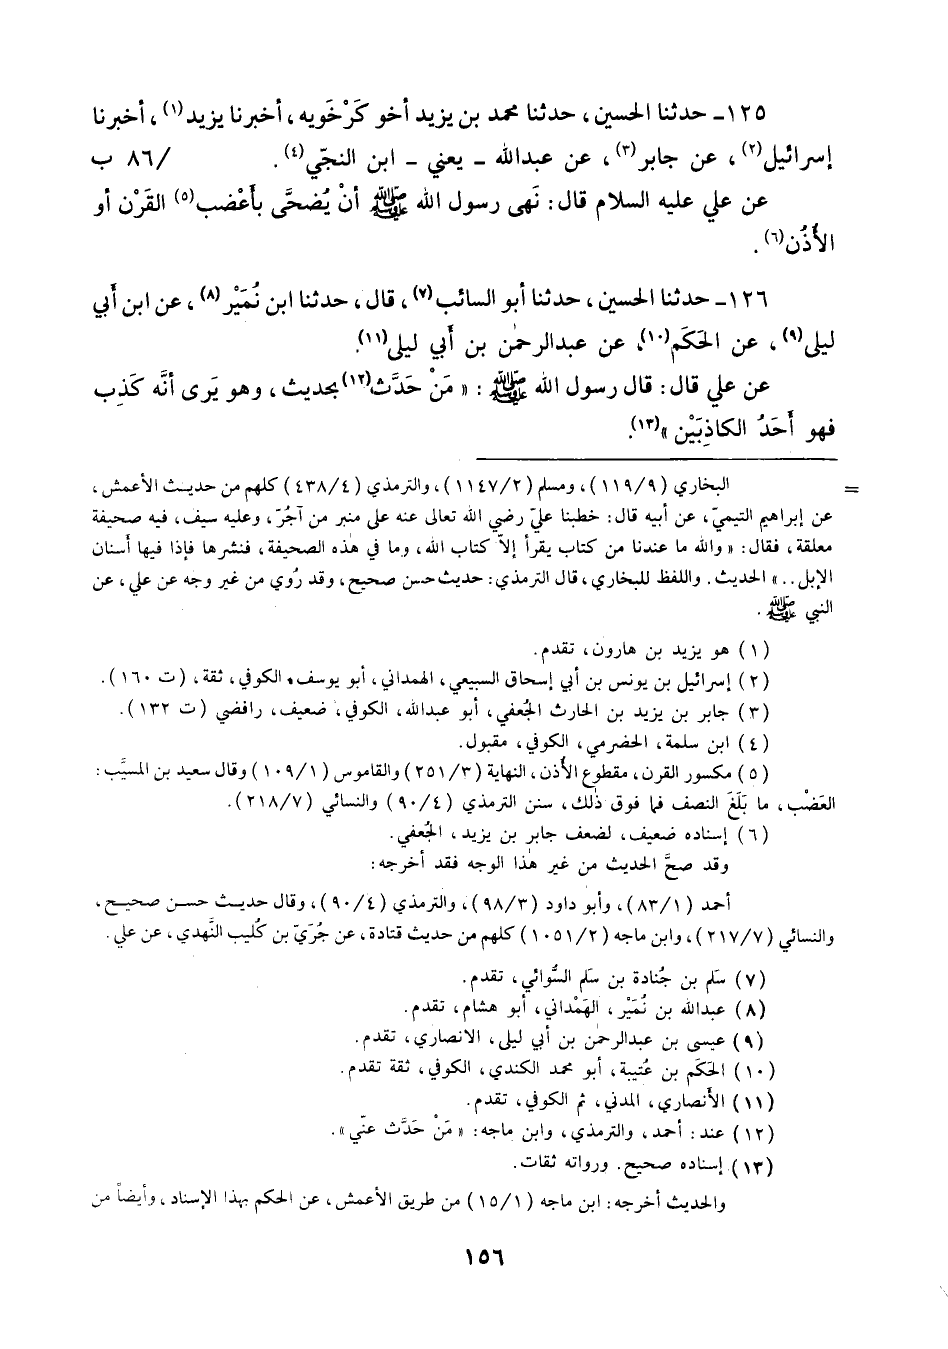 ١٢٥ـ حدثنا الحسين، حدثنا محمد بن يزيد أخو كَرْخَويه، أخبرنا يزيد(١)، أخبرنا
إسرائيل(٢)، عن جابر(٣)، عن عبدالله ـ يعني ـ ابن النجّي(٤). /٨٦ ب
عن علي عليه السلام قال: نَهى رسول الله ﷺ أنْ يُضحَّى بأَعْضب(٥) القَرْن أو
الأُذُن(٦).
١٢٦ـ حدثنا الحسين، حدثنا أبو السائب(٧)، قال، حدثنا ابن نُمَيْر(٨)، عن ابن أبي
ليلى(٩)، عن الحَكَم(١٠)، عن عبدالرحمٰن بن أبي ليلى(١١).
عن علي قال: قال رسول الله ﷺ: « مَنْ حَدَّث(١٢) بحديث، وهو يَرى أنَّه كَذِب
فهو أَحَدُ الكاذِبَيْن »(١٣).
= البخاري (١١٩/٩)، ومسلم (١١٤٧/٢)، والترمذي (٤٣٨/٤) كلهم من حديث الأعمش،
عن إبراهيم التيميّ، عن أبيه قال: خطبنا عليّ رضي الله تعالى عنه على منبر من آجُرّ، وعليه سيف، فيه صحيفة
معلقة، فقال: « والله ما عندنا من كتاب يقرأ إلاّ كتاب الله، وما في هٰذه الصحيفة، فنشرها فإذا فيها أسنان
الإبل..» الحديث. واللفظ للبخاري، قال الترمذي: حديث حسن صحيح، وقد رُوي من غير وجه عن علي، عن
النبي ﷺ.
(١) هو يزيد بن هارون، تقدم.
(٢) إسرائيل بن يونس بن أبي إسحاق السبيعي، الهمداني، أبو يوسف، الكوفي، ثقة، (ت ١٦٠).
(٣) جابر بن يزيد بن الحارث الجُعفي، أبو عبدالله، الكوفي، ضعيف، رافضي (ت ١٣٢).
(٤) ابن سلمة، الحضرمي، الكوفي، مقبول.
(٥) مكسور القرن، مقطوع الأذن، النهاية (٢٥١/٣) والقاموس (١٠٩/١) وقال سعيد بن المسيَّب:
العَضْب، ما بَلَغَ النصف فما فوق ذٰلك، سنن الترمذي (٩٠/٤) والنسائي (٢١٨/٧).
(٦) إسناده ضعيف، لضعف جابر بن يزيد، الجُعفي.
وقد صحَّ الحديث من غير هٰذا الوجه فقد أخرجه:
أحمد (٨٣/١)، وأبو داود (٩٨/٣)، والترمذي (٩٠/٤)، وقال حديث حسن صحيح،
والنسائي (٢١٧/٧)، وابن ماجه (١٠٥١/٢) كلهم من حديث قتادة، عن جُرَيّ بن كُليب النَّهدي، عن علي.
(٧) سَلم بن جُنادة بن سَلم السُّوائي، تقدم.
(٨) عبدالله بن نُمَيْر، الهَمْداني، أبو هشام، تقدم.
(٩) عيسى بن عبدالرحمٰن بن أبي ليلى، الانصاري، تقدم.
(١٠) الحَكَم بن عُتيبة، أبو محمد الكندي، الكوفي، ثقة تقدم.
(١١) الأنصاري، المدني، ثم الكوفي، تقدم.
(١٢) عند: أحمد، والترمذي، وابن ماجه: « مَنْ حَدَّث عنّي».
(١٣) إسناده صحيح. ورواته ثقات.
والحديث أخرجه: ابن ماجه (١٥/١) من طريق الأعمش، عن الحكم بهذا الإسناد، وأيضاً من
١٥٦